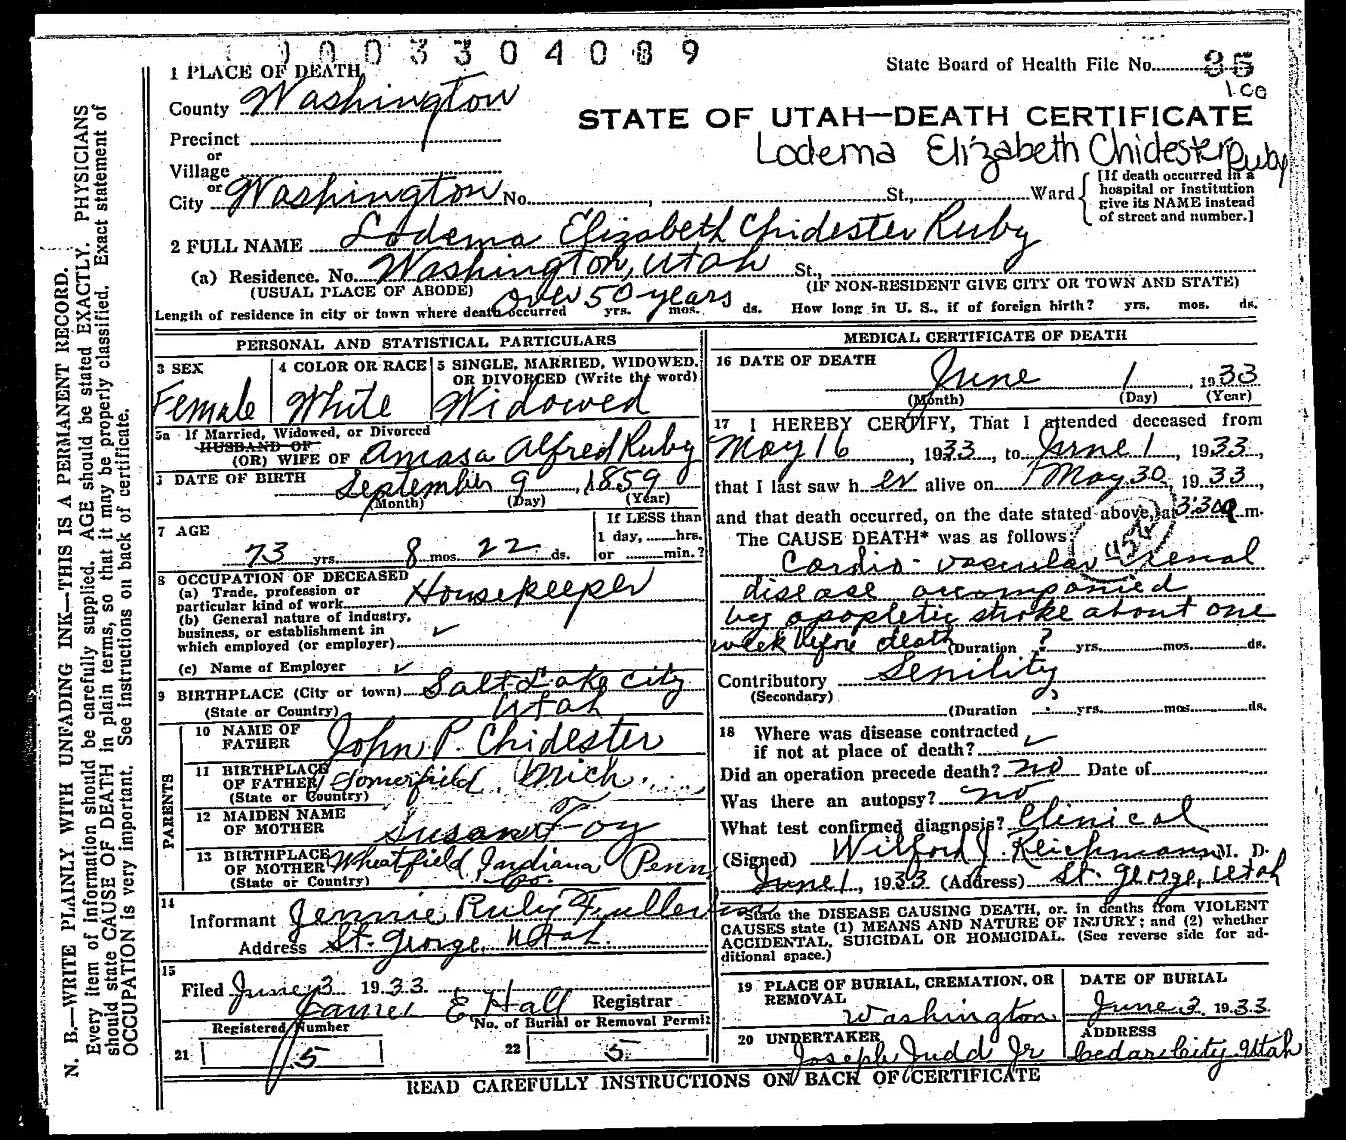 1003304089
State Board of Health File No. 35
1 PLACE OF DEATH
County Washington
STATE OF UTAH—DEATH CERTIFICATE
Precinct
Lodema Elizabeth Chidester Ruby
or
Village
or
City Washington No. , St., Ward
[If death occurred in a
hospital or institution
give its NAME instead
of street and number.]
2 FULL NAME Lodema Elizabeth Chidester Ruby
(a) Residence. No. Washington, Utah St.,
(USUAL PLACE OF ABODE) (IF NON-RESIDENT GIVE CITY OR TOWN AND STATE)
Length of residence in city or town where death occurred over 50 years yrs. mos. ds. How long in U. S., if of foreign birth? yrs. mos. ds.
PERSONAL AND STATISTICAL PARTICULARS
3 SEX
Female
4 COLOR OR RACE
White
5 SINGLE, MARRIED, WIDOWED,
OR DIVORCED (Write the word)
Widowed
5a If Married, Widowed, or Divorced
HUSBAND OF
(OR) WIFE OF Amasa Alfred Ruby
DATE OF BIRTH September 9, 1859
(Month) (Day) (Year)
7 AGE
73 yrs. 8 mos. 22 ds.
If LESS than
1 day, hrs.
or min.?
8 OCCUPATION OF DECEASED
(a) Trade, profession or
particular kind of work Housekeeper
(b) General nature of industry,
business, or establishment in
which employed (or employer)
(c) Name of Employer
9 BIRTHPLACE (City or town) Salt Lake City
(State or Country) Utah
PARENTS
10 NAME OF
FATHER John P. Chidester
11 BIRTHPLACE
OF FATHER Somerfield Mich.
(State or Country)
12 MAIDEN NAME
OF MOTHER Susan Foy
13 BIRTHPLACE
OF MOTHER Wheatfield, Indiana Co. Penn
(State or Country)
14
Informant Jennie Ruby Fuller
Address St. George, Utah.
15
Filed June 3 1933
James E Hall Registrar
Registered Number
21 5
No. of Burial or Removal Permit
22 5
MEDICAL CERTIFICATE OF DEATH
16 DATE OF DEATH
June 1, 1933
(Month) (Day) (Year)
17 I HEREBY CERTIFY, That I attended deceased from
May 16, 1933, to June 1, 1933,
that I last saw her alive on May 30, 1933,
and that death occurred, on the date stated above, at 3:30 a m.
The CAUSE DEATH* was as follows:
Cardio-vascular-renal
disease accompanied
by apopletic stroke about one
week before death (Duration ? yrs. mos. ds.
Contributory Senility
(Secondary)
(Duration ? yrs. mos. ds.
18 Where was disease contracted
if not at place of death?
Did an operation precede death? no Date of
Was there an autopsy? no
What test confirmed diagnosis? Clinical
(Signed) Wilford J. Reichmann M. D.
June 1, 1933 (Address) St. George, Utah
*State the DISEASE CAUSING DEATH, or, in deaths from VIOLENT
CAUSES state (1) MEANS AND NATURE OF INJURY; and (2) whether
ACCIDENTAL, SUICIDAL OR HOMICIDAL. (See reverse side for ad-
ditional space.)
19 PLACE OF BURIAL, CREMATION, OR
REMOVAL
Washington
DATE OF BURIAL
June 3, 1933
20 UNDERTAKER
Joseph Judd Jr
ADDRESS
Cedar City, Utah
READ CAREFULLY INSTRUCTIONS ON BACK OF CERTIFICATE
N. B.—WRITE PLAINLY WITH UNFADING INK—THIS IS A PERMANENT RECORD.
Every item of information should be carefully supplied. AGE should be stated EXACTLY. PHYSICIANS
should state CAUSE OF DEATH in plain terms, so that it may be properly classified. Exact statement of
OCCUPATION is very important. See instructions on back of certificate.